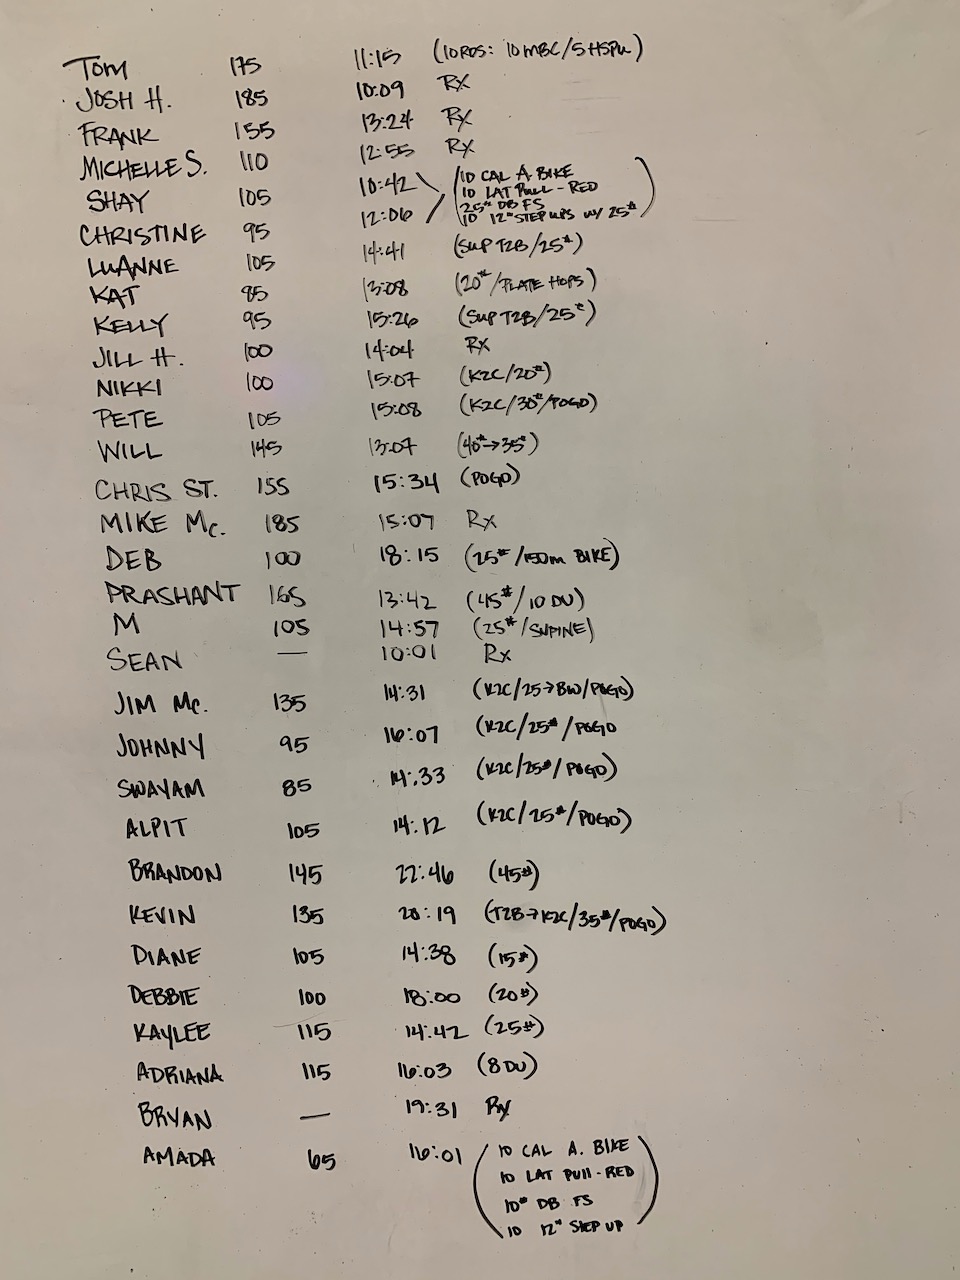 TOM 175 11:15 (10 RDS: 10 MBC/5 HSPU)
JOSH H. 185 10:09 RX
FRANK 155 13:24 RX
MICHELLE S. 110 12:55 RX
SHAY 105 10:42 (10 CAL A. BIKE
10 LAT PULL - RED
25# DB FS
CHRISTINE 95 12:06 10 12" STEP UPS W/ 25#)
LUANNE 105 14:41 (SUP T2B/25#)
KAT 85 13:08 (20#/PLATE HOPS)
KELLY 95 15:26 (SUP T2B/25#)
JILL H. 100 14:04 RX
NIKKI 100 15:07 (K2C/20#)
PETE 105 15:08 (K2C/30#/POGO)
WILL 145 13:07 (40#→35#)
CHRIS ST. 155 15:34 (POGO)
MIKE Mc. 185 15:07 Rx
DEB 100 18:15 (25#/150m BIKE)
PRASHANT 165 13:42 (45#/10 DU)
M 105 14:57 (25#/SUPINE)
SEAN — 10:01 Rx
JIM Mc. 135 14:31 (K2C/25→BW/POGO)
JOHNNY 95 16:07 (K2C/25#/POGO
SWAYAM 85 14:33 (K2C/25#/POGO)
ALPIT 105 14:12 (K2C/25#/POGO)
BRANDON 145 22:46 (45#)
KEVIN 135 20:19 (T2B→K2C/35#/POGO)
DIANE 105 14:38 (15#)
DEBBIE 100 18:00 (20#)
KAYLEE 115 14:42 (25#)
ADRIANA 115 16:03 (8 DU)
BRYAN — 19:31 RX
AMADA 65 16:01 (10 CAL A. BIKE
10 LAT PULL - RED
10# DB FS
10 12" STEP UP)